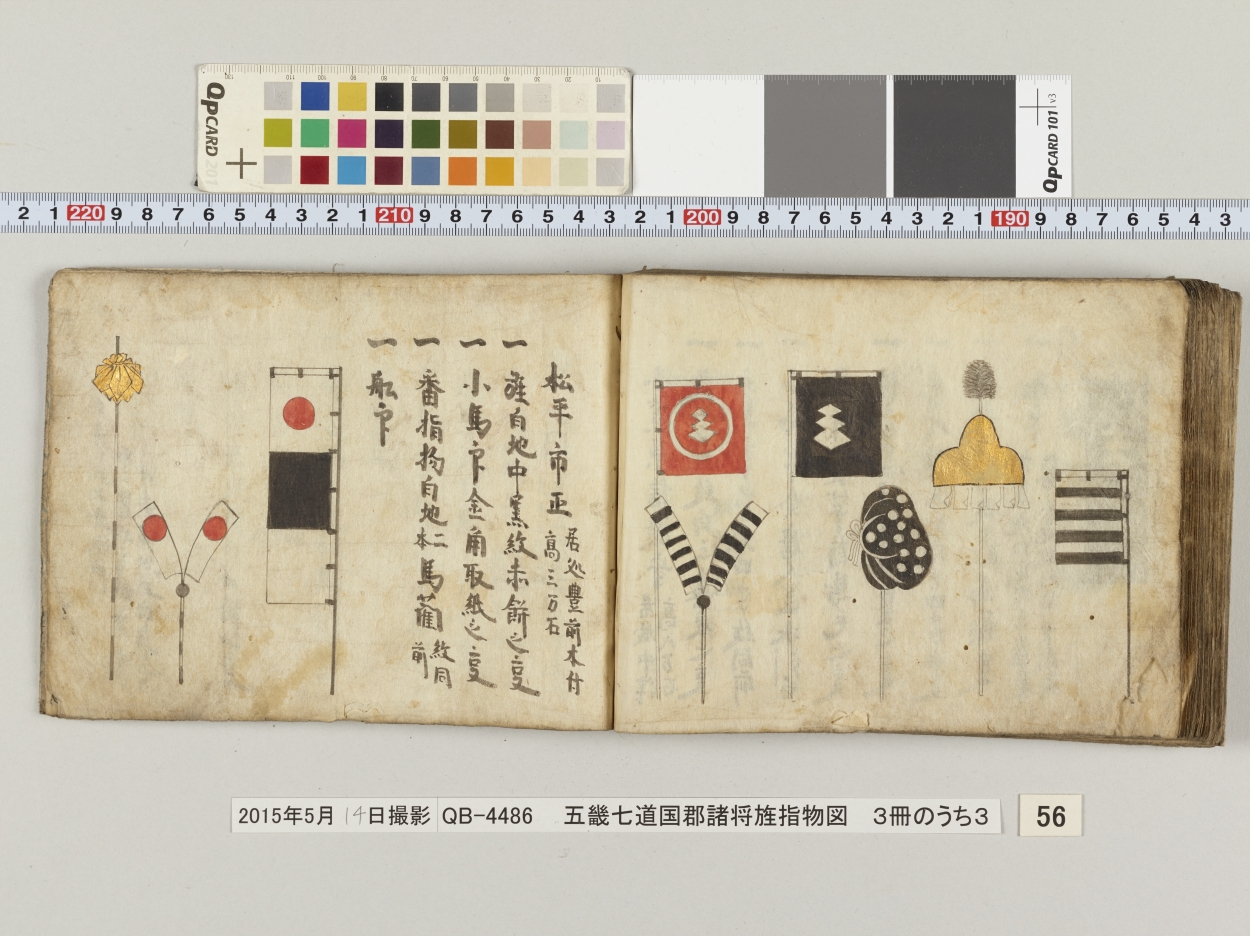 QPCARD 201
QPCARD 101 v3
2 1 220 9 8 7 6 5 4 3 2 1 210 9 8 7 6 5 4 3 2 1 200 9 8 7 6 5 4 3 2 1 190 9 8 7 6 5 4 3
松平市正
居処豊前木付
高三万石
一 旌白地中黒紋赤餅之夏
一 小馬印金角取紙之夏
一 番指物白地二本馬藺
紋同
前
一 船印
2015年5月14日撮影
QB-4486 五畿七道国郡諸将旌指物図 3冊のうち3
56